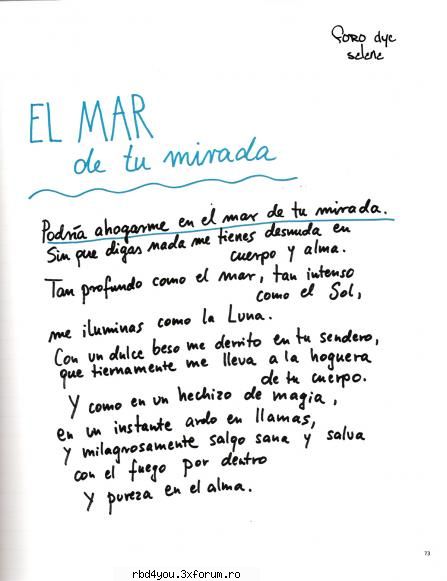 FORO dye
selene
EL MAR
de tu mirada
Podría ahogarme en el mar de tu mirada.
Sin que digas nada me tienes desnuda en
cuerpo y alma.
Tan profundo como el mar, tan intenso
como el Sol,
me iluminas como la Luna.
Con un dulce beso me derrito en tu sendero,
que tiernamente me lleva a la hoguera
de tu cuerpo.
Y como en un hechizo de magia,
en un instante ardo en llamas,
y milagrosamente salgo sana y salva
con el fuego por dentro
y pureza en el alma.
73
rbd4you.3xforum.ro